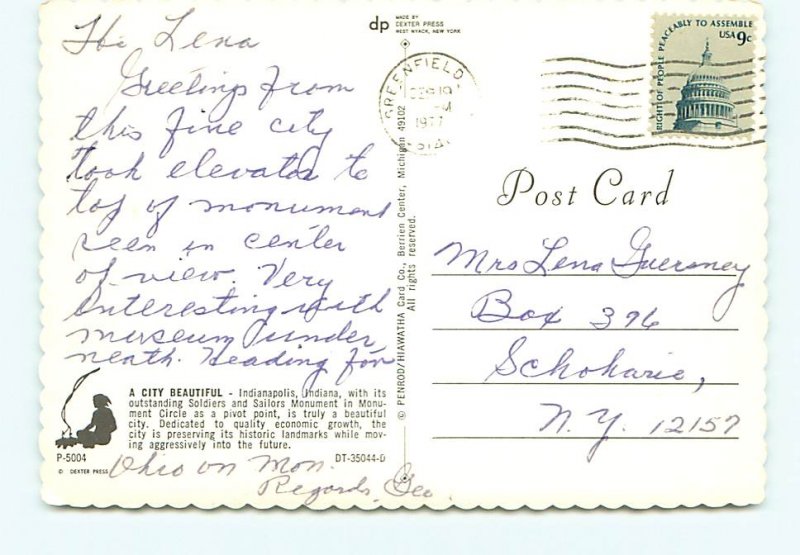 Hi Lena
Greetings from
this fine city
took elevator to
top of monument
seen in center
of view. Very
interesting with
museum under
neath. Heading for
Ohio on Mon.
Regards, Geo
A CITY BEAUTIFUL - Indianapolis, Indiana, with its
outstanding Soldiers and Sailors Monument in Monu-
ment Circle as a pivot point, is truly a beautiful
city. Dedicated to quality economic growth, the
city is preserving its historic landmarks while mov-
ing aggressively into the future.
P-5004
DT-35044-D
© DEXTER PRESS
dp
MADE BY
DEXTER PRESS
WEST NYACK, NEW YORK
© PENROD/HIAWATHA Card Co., Berrien Center, Michigan 49102
All rights reserved.
GREENFIELD
19
PM
1977
RIGHT OF PEOPLE PEACEABLY TO ASSEMBLE
USA 9c
Post Card
Mrs Lena Guernsey
Box 396
Schoharie,
N.Y. 12157